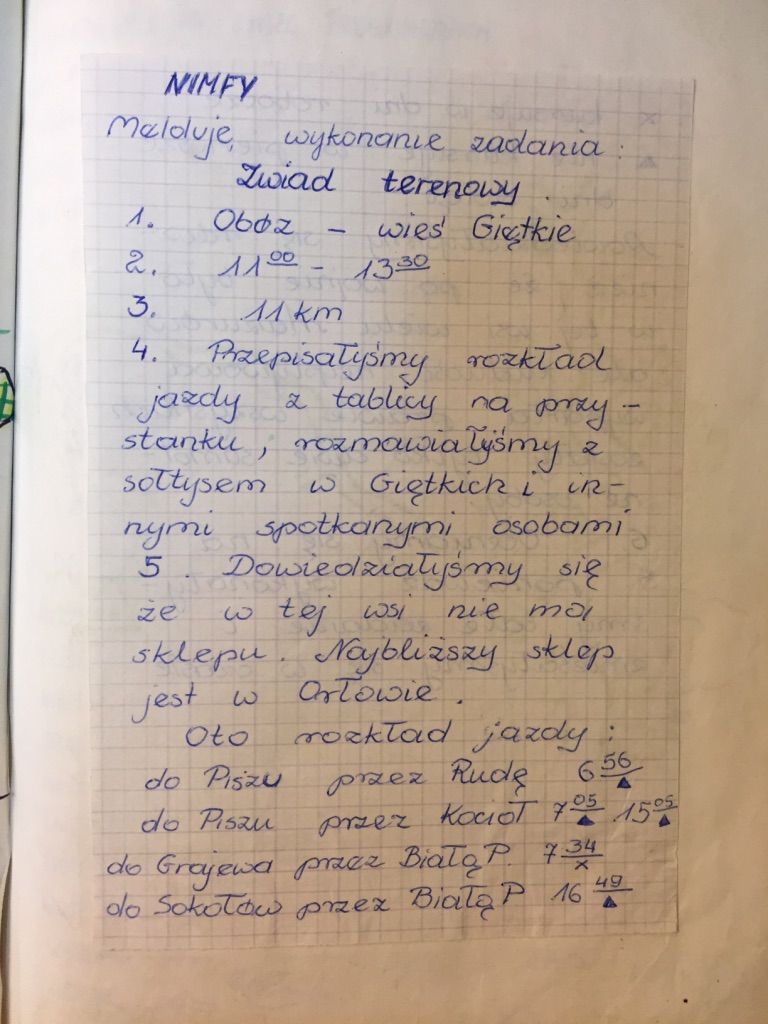 NIMFY
Melduję wykonanie zadania :
Zwiad terenowy.
1. Obóz – wieś Giętkie
2. 11 00 - 13 30
3. 11 km
4. Przepisałyśmy rozkład
jazdy z tablicy na przy-
stanku, rozmawiałyśmy z
sołtysem w Giętkich i in-
nymi spotkanymi osobami
5. Dowiedziałyśmy się
że w tej wsi nie ma
sklepu. Najbliższy sklep
jest w Orłowie.
Oto rozkład jazdy :
do Piszu przez Rudę 6 56 ▲
do Piszu przez Kocioł 7 05 ▲ 15 05 ▲
do Grajewa przez Białą P. 7 34 x
do Sokołów przez Białą P 16 49 ▲